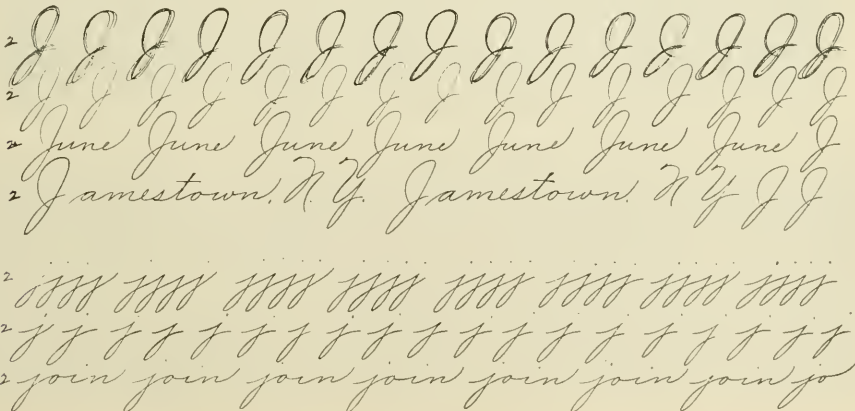 2 J J J J J J J J J J J J J J J
2 J J J J J J J J J J J J J J J
2 June June June June June June June J
2 Jamestown, N.Y. Jamestown. N Y. J J
2 jjjj jjjj jjjj jjjj jjjj jjjj jjjj jjjj
2 j j j j j j j j j j j j j j j j j j j
2 join join join join join join join jo